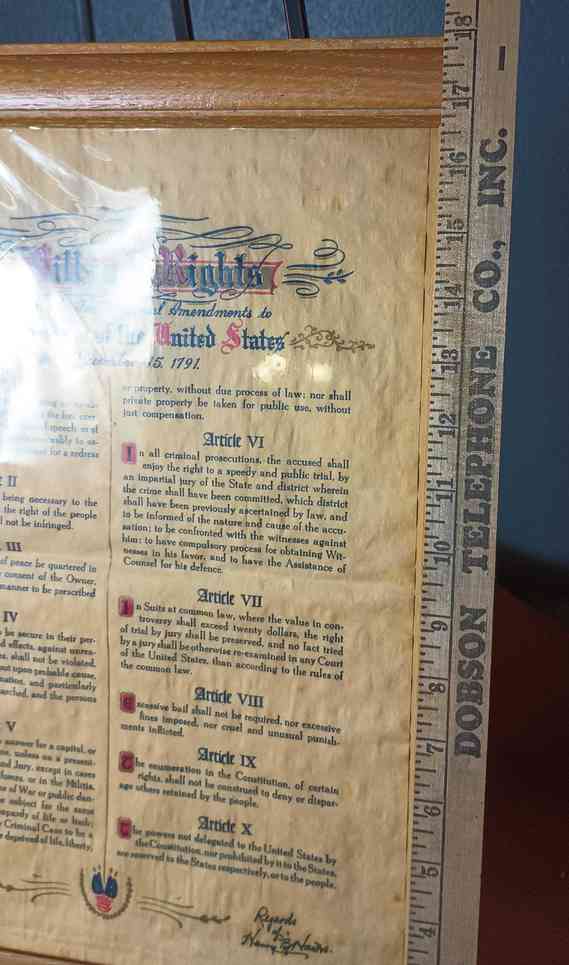 Bill Rights
Amendments to
of the United States
15, 1791.
or property, without due process of law; nor shall
private property be taken for public use, without
just compensation.
Article VI
In all criminal prosecutions, the accused shall
enjoy the right to a speedy and public trial, by
an impartial jury of the State and district wherein
the crime shall have been committed, which district
shall have been previously ascertained by law, and
to be informed of the nature and cause of the accu-
sation; to be confronted with the witnesses against
him; to have compulsory process for obtaining Wit-
nesses in his favor, and to have the Assistance of
Counsel for his defence.
Article VII
In Suits at common law, where the value in con-
troversy shall exceed twenty dollars, the right
of trial by jury shall be preserved, and no fact tried
by a jury shall be otherwise re-examined in any Court
of the United States, than according to the rules of
the common law.
Article VIII
Excessive bail shall not be required, nor excessive
fines imposed, nor cruel and unusual punish-
ments inflicted.
Article IX
The enumeration in the Constitution, of certain
rights, shall not be construed to deny or dispar-
age others retained by the people.
Article X
The powers not delegated to the United States by
the Constitution, nor prohibited by it to the States,
are reserved to the States respectively, or to the people.
for a redress
II
being necessary to the
the right of the people
not be infringed.
III
of peace be quartered in
consent of the Owner,
manner to be prescribed
IV
be secure in their per-
effects, against unrea-
shall not be violated,
but upon probable cause,
and particularly
and the persons
V
answer for a capital, or
unless on a present-
Jury, except in cases
or in the Militia,
of War or public dan-
be subject for the same
jeopardy of life or limb;
Criminal Case to be a
deprived of life, liberty,
Regards
DOBSON TELEPHONE CO., INC.
18
17
16
15
14
13
12
11
10
9
8
7
6
5
4